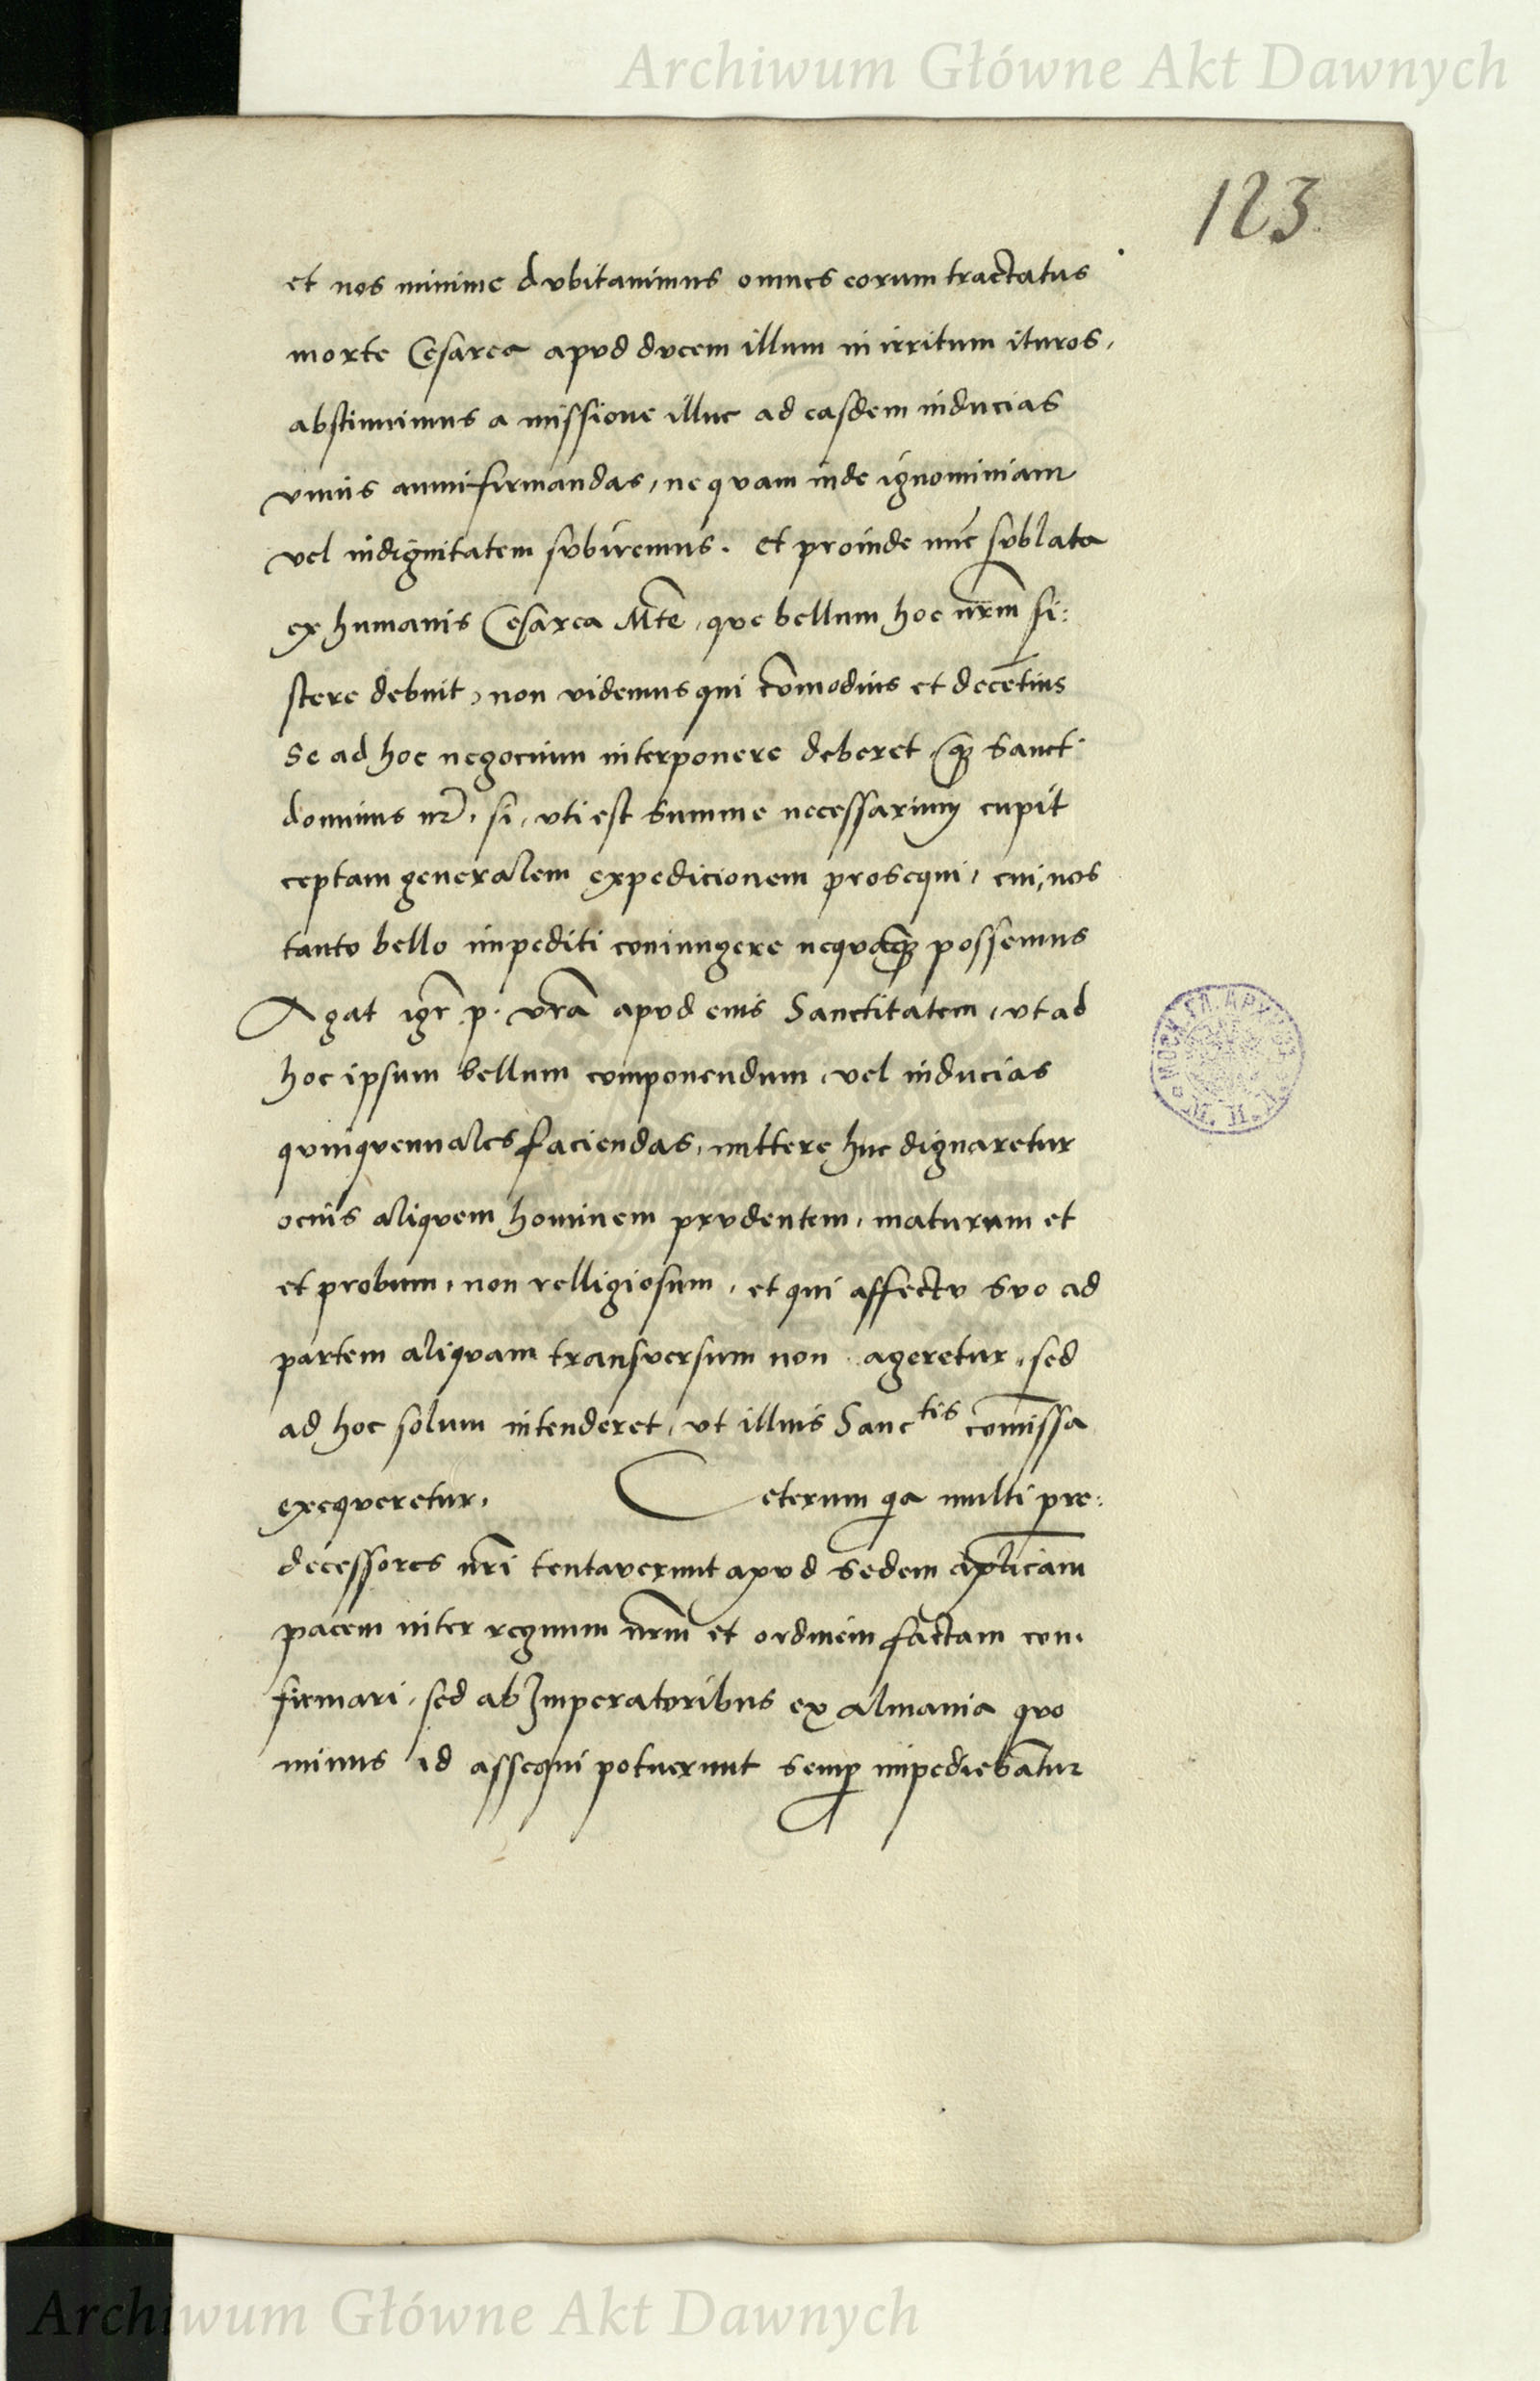 Archiwum Główne Akt Dawnych
123
et nos minime dvbitauimus omnes eorum tractatus
morte Cesarea apvd dvcem illum in irritum ituros,
abstinuimus a missione illuc ad easdem inducias
vnius anni firmandas, ne qvam inde ignominiam
vel indignitatem svbiremus. et proinde nũc svblata
ex humanis Cesarea Mte, qve bellum hoc nrm̃ si:
stere debuit, non videmus qui cõmodius et decẽtius
se ad hoc negocium interponere deberet, qȝ Sanct.
dominus nr̃, si, vti est summe necessarium cupit
ceptam generalem expedicionem prosequi, cui, nos
tanto bello impediti coniungere neqvaqȝ possemus
Agat igr̃ p. vrã apvd eius Sanctitatem, vt ad
hoc ipsum bellum componendum, vel inducias
qvinqvennales faciendas, mittere huc dignaretur
ocius aliqvem hominem prvdentem, maturum et
et probum, non relligiosum, et qui affectv svo ad
partem aliqvam transversum non ageretur, sed
ad hoc solum intenderet, vt illius Sanctis comissa
exeqveretur, Ceterum qa multi pre:
decessores nr̃i tentaverunt apvd sedem aplicam
pacem inter regnum nrm̃ et ordinem factam con,
firmari, sed ab Imperatoribus ex almania qvo
minus id assequi potuerunt semp impediebãtur
Archiwum Główne Akt Dawnych